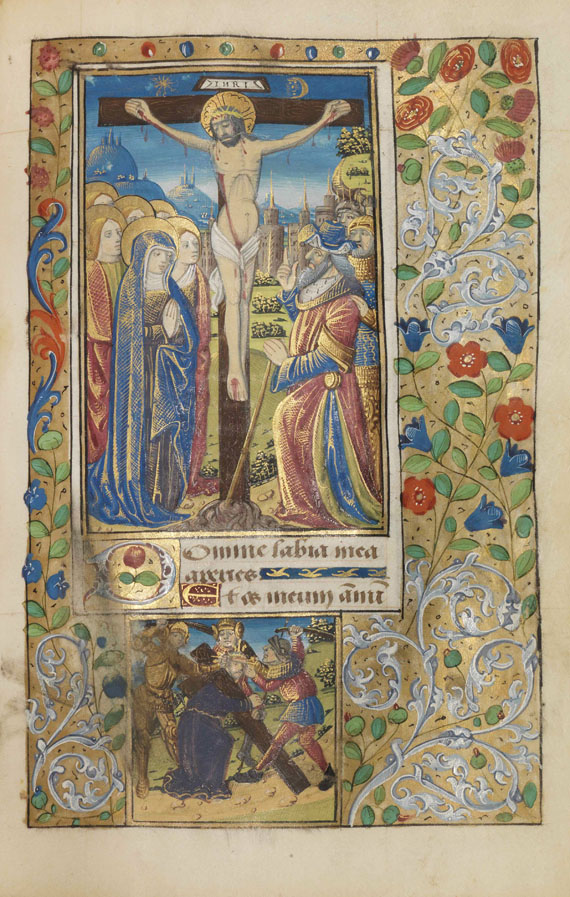 INRI
Domine labia mea
aperies
Et os meum anũ